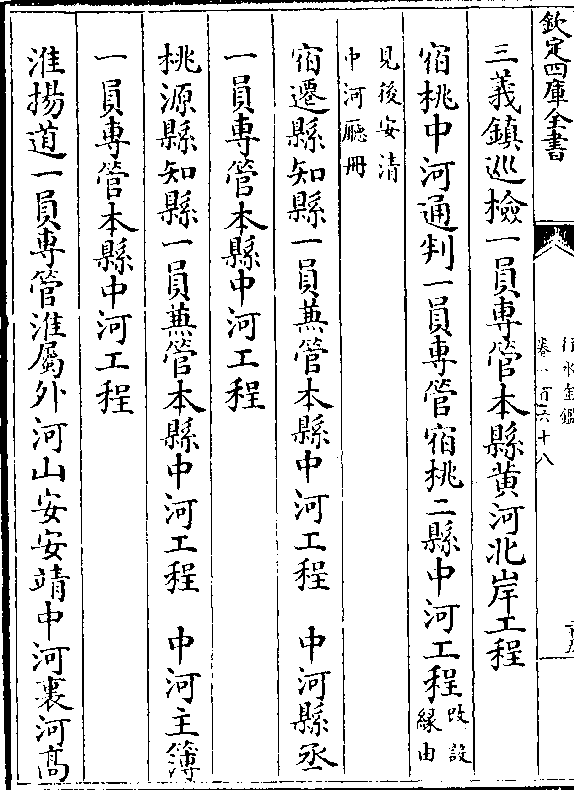 欽定四庫全書
行水金鑑
卷一百六十八
三義鎮巡檢一員專管本縣黄河北岸工程
宿桃中河通判一員專管宿桃二縣中河工程改設緣由
見後安清
中河㕔冊
宿遷縣知縣一員兼管本縣中河工程　中河縣丞
一員專管本縣中河工程
桃源縣知縣一員兼管本縣中河工程　中河主簿
一員專管本縣中河工程
淮揚道一員專管淮屬外河山安安靖中河裏河高